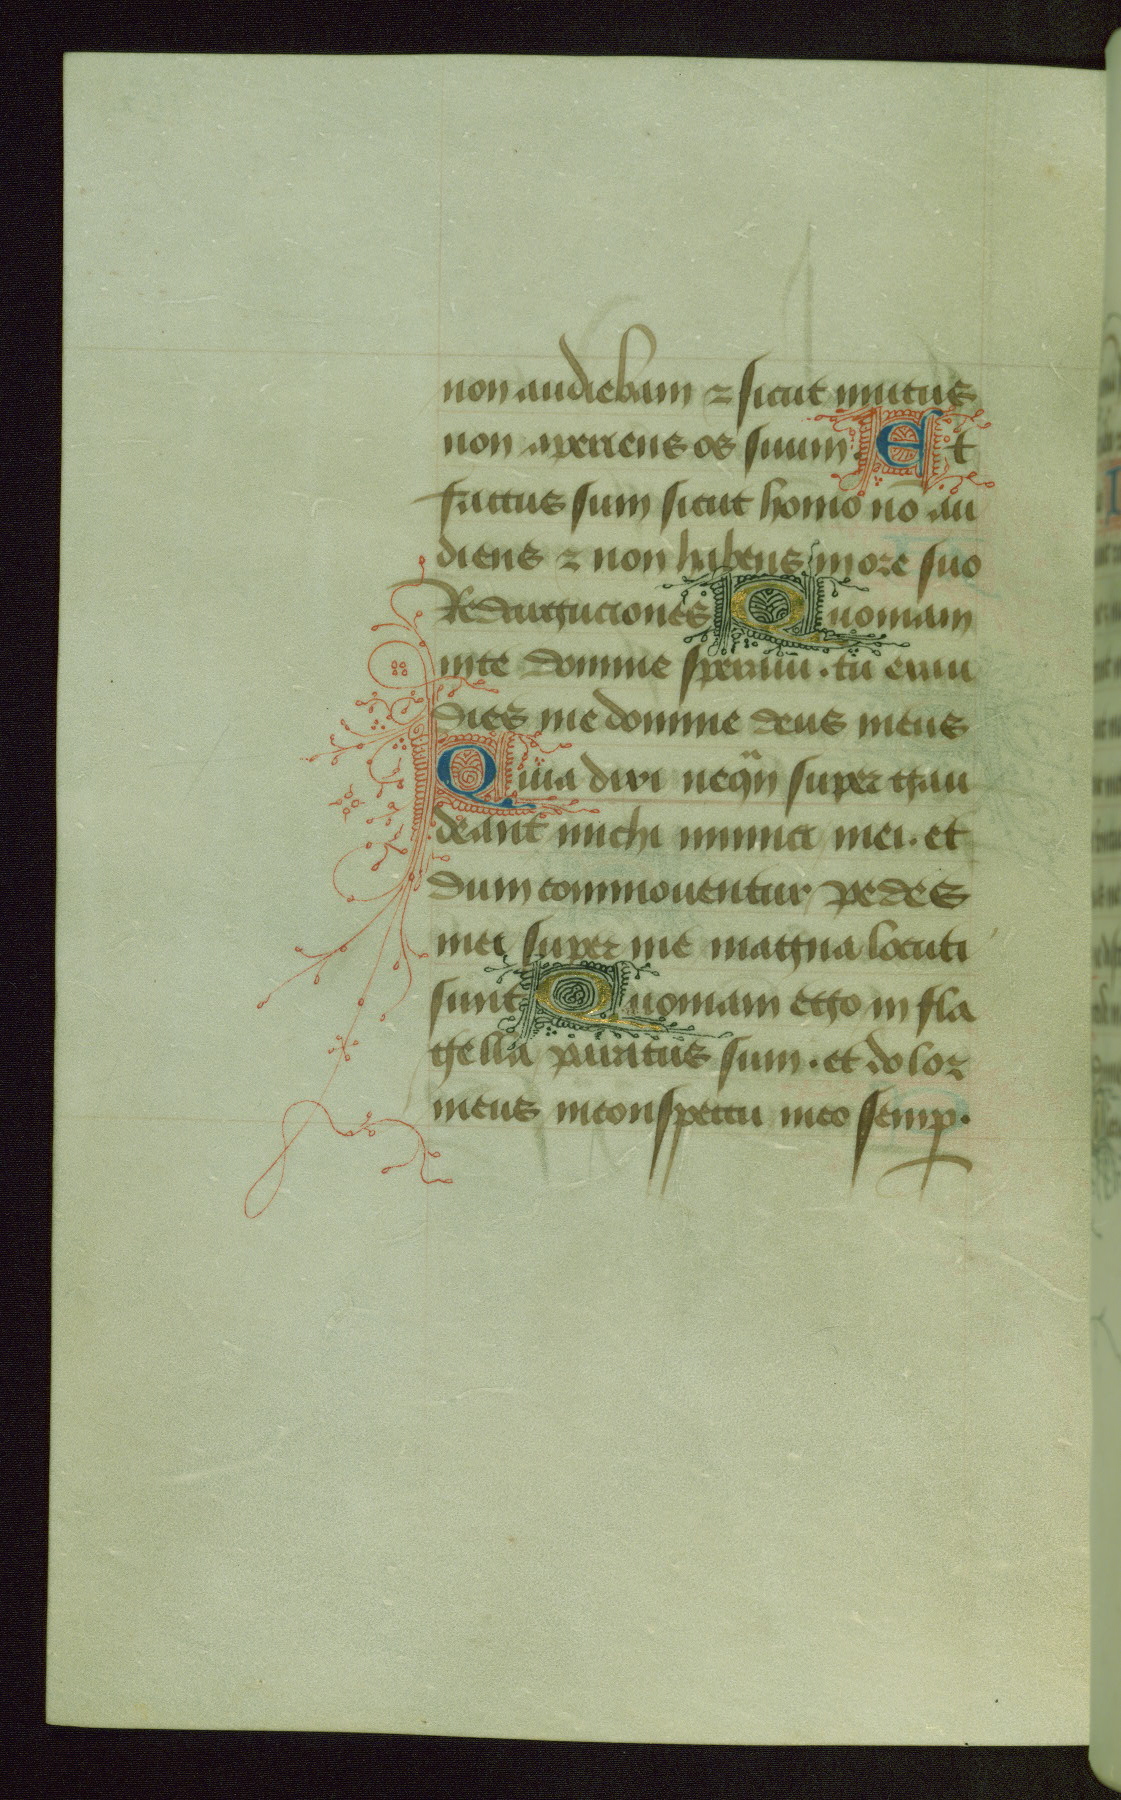 non audiebam ⁊ sicut mutus
non aperiens os suum. Et
factus sum sicut homo nō au
diens ⁊ non habens in ore suo
Redarguciones Quoniam
in te domine speraui. tu exau
dies me domine deus meus
Quia dixi neqn̄ super gau
deant michi inimici mei. et
dum commouentur pedes
mei super me magna locuti
sunt Quoniam ego in fla
gella paratus sum. et dolor
meus in conspectu meo semꝑ.